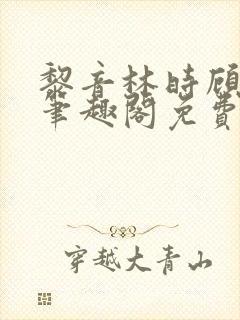 黎音林时顾
笔趣阁免费
穿越大青山